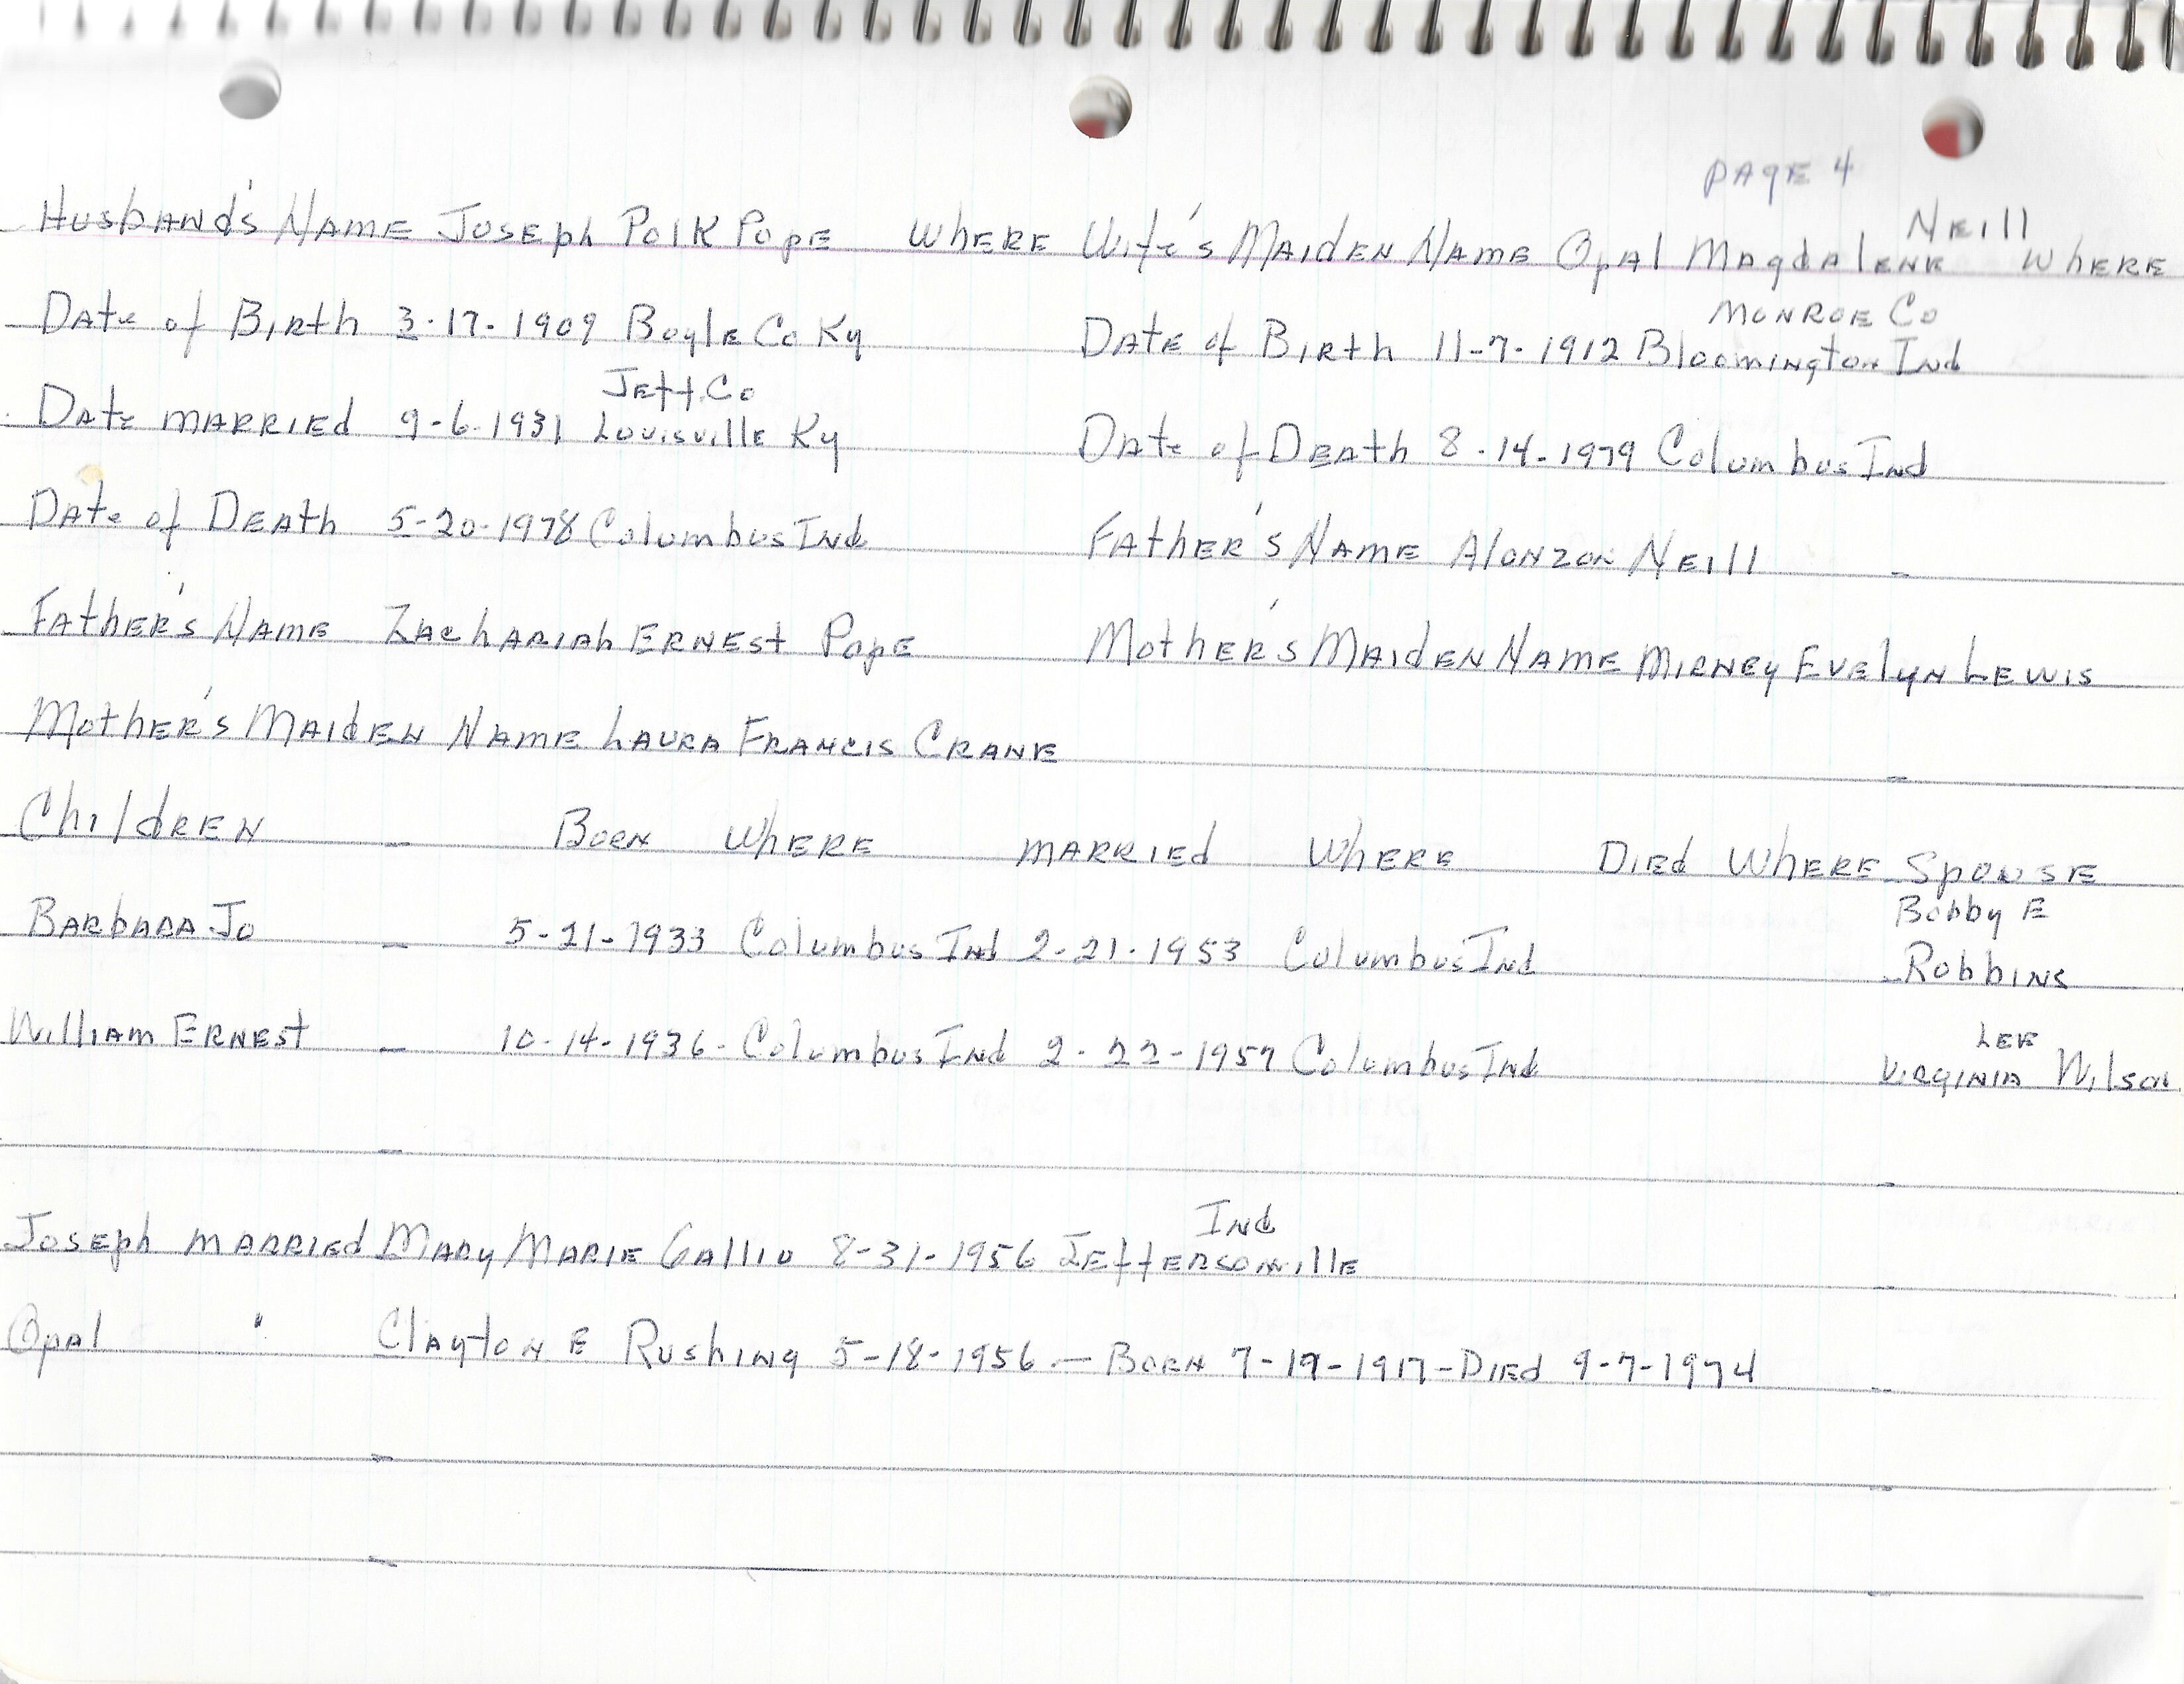 PAGE 4
Husband's Name Joseph Polk Pope Where Wife's Maiden Name Opal Magdalene Neill Where
Date of Birth 3-17-1909 Boyle Co Ky Date of Birth 11-7-1912 Bloomington Ind Monroe Co
Jeff. Co
Date Married 9-6-1931 Louisville Ky Date of Death 8-14-1979 Columbus Ind
Date of Death 5-20-1978 Columbus Ind Father's Name Alonzon Neill
Father's Name Zachariah Ernest Pope Mother's Maiden Name Mirney Evelyn Lewis
Mother's Maiden Name Laura Francis Crane
Children Born Where Married Where Died Where Spouse
Barbara Jo 5-21-1933 Columbus Ind 2-21-1953 Columbus Ind Bobby E Robbins
William Ernest 10-14-1936 - Columbus Ind 2-22-1957 Columbus Ind Virginia Lee Wilson
Joseph married Mary Marie Gallio 8-31-1956 Jeffersonville Ind
Opal " Clayton E Rushing 5-18-1956 — Born 7-19-1917 - Died 9-7-1974